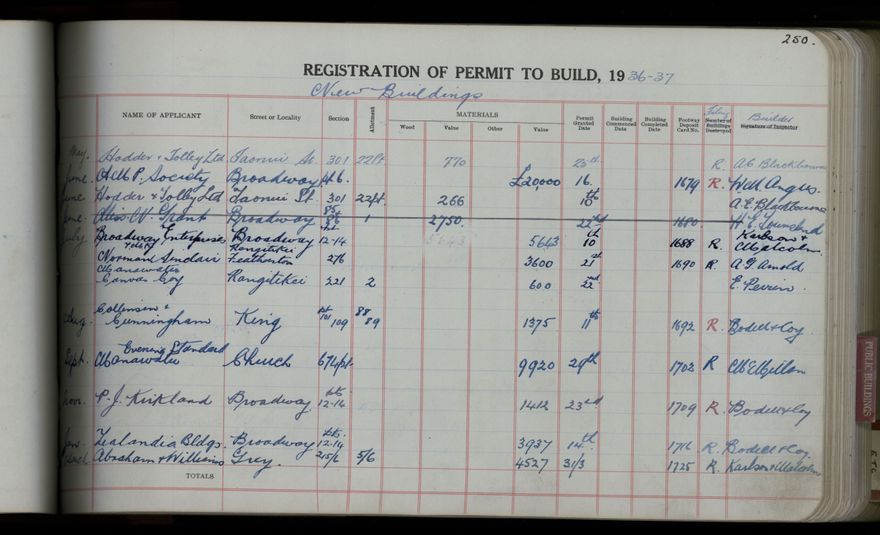 250.
REGISTRATION OF PERMIT TO BUILD, 1936-37
New Buildings
NAME OF APPLICANT Street or Locality Section Allotment MATERIALS Wood Value Other Value Permit Granted Date Building Commenced Date Building Completed Date Footway Deposit Card No. Filing Number of Buildings Destroyed Builder Signature of Inspector
May. Hodder & Tolley Ltd Taonui St. 301 22pt 770 25th R. A E Blackbourn
June A.M.P. Society Broadway 146. £20,000 16. 1679 R. W.M. Angus.
June Hodder & Tolley Ltd Taonui St. 301 22pt 266 10th A.E. Blackbourne
June Miss W. Grant Broadway 1 2750. 22nd 1680 H E Townsend
July Broadway Enterprises Broadway pt 12-14 5643 5643 10th 1688 R. Karlson & Malcolm.
Norman Sinclair Rangitikei Featherston 276 3600 21st 1690 R. A G Arnold
Manawatu Canvas Coy Rangitikei 221 2 600 22nd E. Perrin.
Aug. Collinson & Cunningham King pt 101 109 88 89 1375 11th 1692 R. Bodell & Coy.
Sept. Manawatu Evening Standard Church 674pt. 9920 29th 1702 R McMillan
Nov. P. J. Kirkland Broadway. pts. 12-14 1412 23rd 1709 R. Bodell & Coy
Jan. Zealandia Bldgs. Broadway pts. 12-14 3937 14th 1716 R. Bodell & Coy.
March Abraham & Williams Grey. 215/6 5/6 4527 31/3 1725 R. Karlson & Malcolm
TOTALS
PUBLIC BUILDINGS